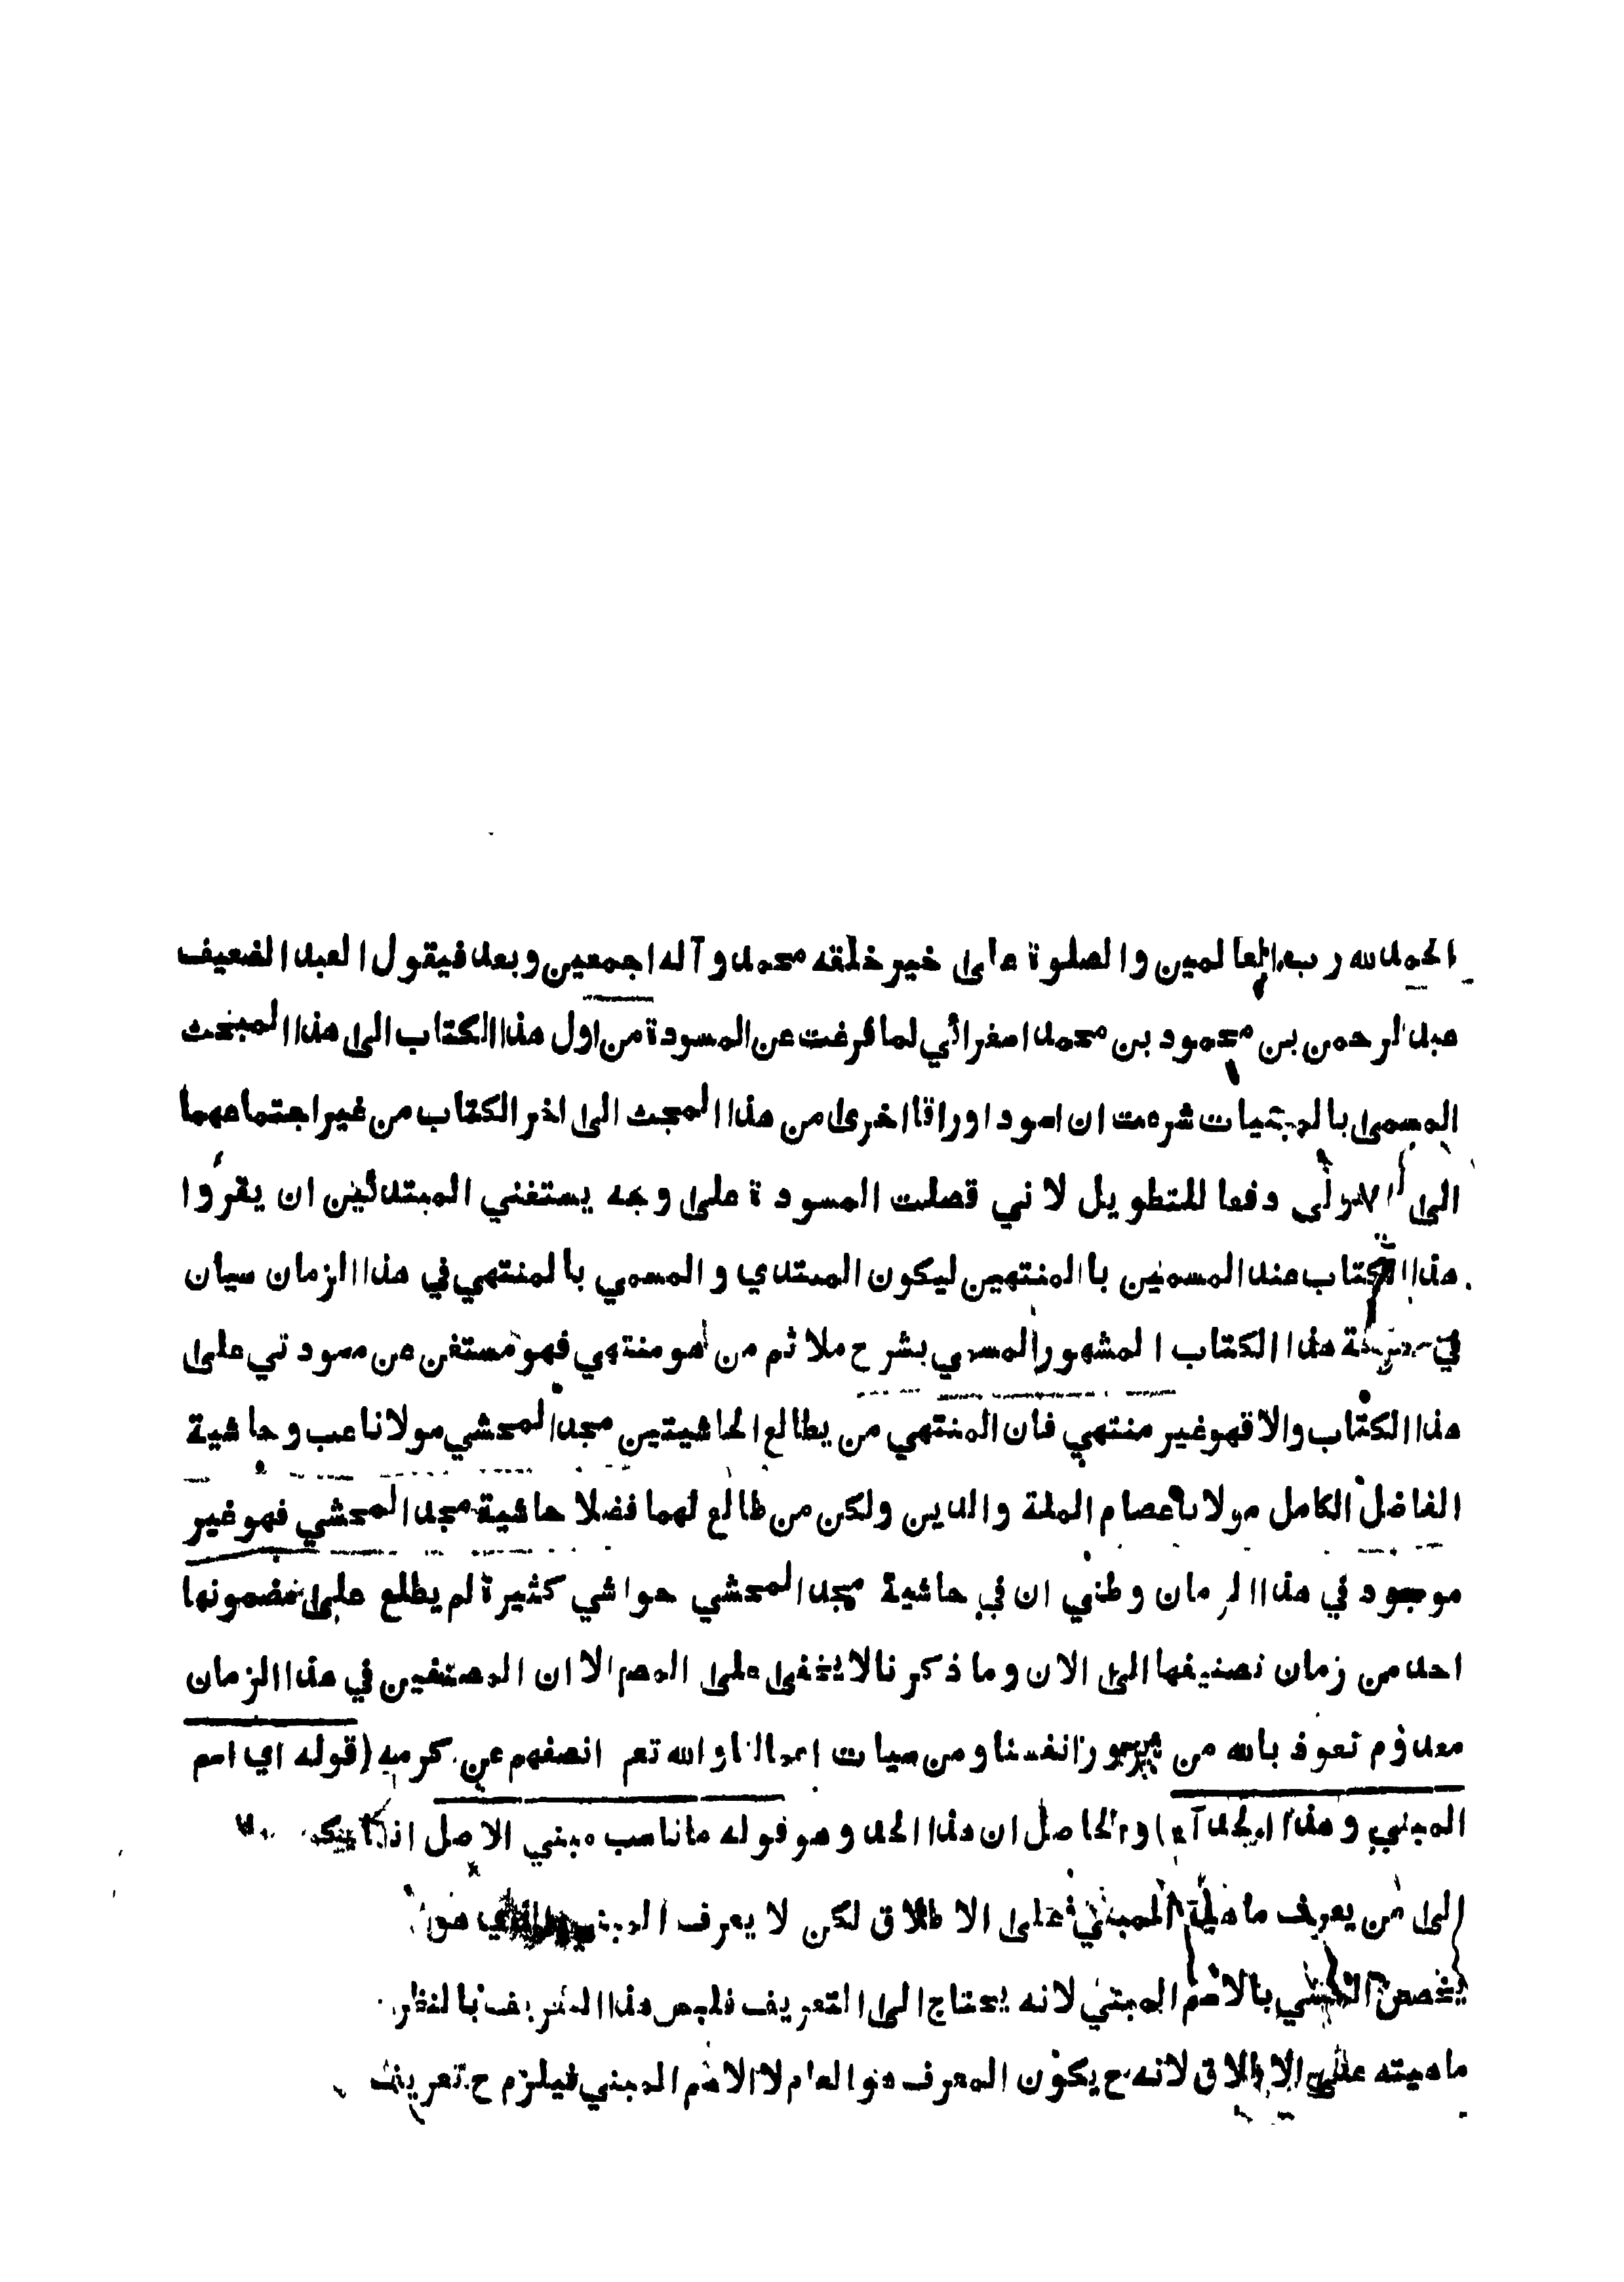 الحمد لله رب العالمين والصلوة على خير خلقه محمد وآله اجمعين وبعد فيقول العبد الضعيف
عبد الرحمن بن محمود بن محمد اصفرائي لما فرغت عن المسودة من اول هذا الكتاب الى هذا المبحث
المسمى بالمبنيات شرعت ان اسود اوراقا اخرى من هذا المبحث الى اخر الكتاب من غير اجتماعهما
الى الاولى دفعا للتطويل لاني قصدت المسودة على وجه يستغني المبتدئين ان يقروا
هذا الكتاب عند المسمين بالمنتهين ليكون المبتدي والمسمي بالمنتهي في هذا الزمان سيان
في هذا الكتاب المشهور المسمي بشرح ملا ثم من هو منتهي فهو مستغن عن مسودتي على
هذا الكتاب والا فهو غير منتهي فان المنتهي من يطالع الحاشيتين مجد المحشي مولانا عب وحاشية
الفاضل الكامل مولانا عصام الملة والدين ولكن من طالع لهما فضلا حاشية مجد المحشي فهو غير
موجود في هذا الزمان وظني ان في حاشية مجد المحشي حواشي كثيرة لم يطلع على مضمونها
احد من زمان تصنيفها الى الان وما ذكرنا لا يخفى على المصم الا ان المصنفين في هذا الزمان
معدوم نعوذ بالله من شرور انفسنا ومن سيات اعمالنا والله تعم انصفهم عن كرمه (قوله اي اسم
المبني وهذا الحد آه) والحاصل ان هذا الحد وهو قوله ما ناسب مبني الاصل
الى من يعرف ماهية المبني على الاطلاق لكن لا يعرف
يخصص المبني بالاسم المبني لانه يحتاج الى التعريف فليس هذا التعريف بالنظر
ماهيته على الاطلاق لانه ح يكون المعرف هو العام لا الاسم المبني فيلزم ح تعريف